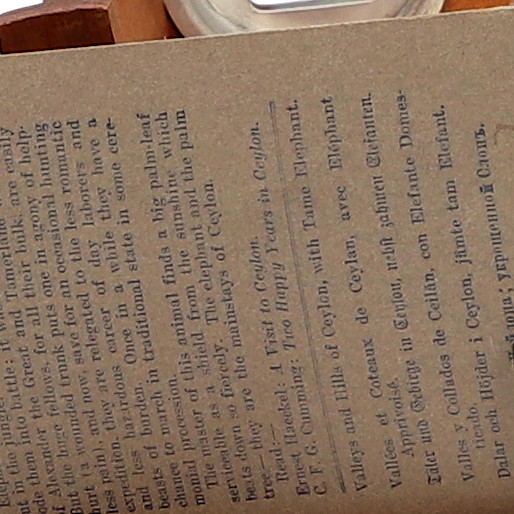 jungle
nt in the into battle; it was easily
ode them the Great and Tamerlane
f Alexander fellows, for all their bulk, are
But the huge trunk puts one in agony of help-
hurt (a wounded save for an occasional hunting
less pain), and now relegated to the less romantic
expedition, they are career of day laborers and
and less hazardous Once in a while they have a
beasts of burden in traditional state in some cere-
chance to march
monial procession.
The master of this animal finds a big palm-leaf
serviceable as a shield from the sunshine which
beats down so fiercely. The elephant and the palm
tree—they are the mainstays of Ceylon.
Read:—
Ernest Haeckel: A Visit to Ceylon.
C. F. G. Cumming: Two Happy Years in Ceylon.
Valleys and Hills of Ceylon, with Tame Elephant.
Vallées et Coteaux de Ceylan, avec Eléphant
Apprivoisé.
Täler und Gebirge in Ceylon, nebst zahmen Elefanten.
Valles y Collados de Ceilán, con Elefante Domes-
ticado.
Dalar och Höjder i Ceylon, jämte tam Elefant.
Цейлона; укрощенной Слонъ.